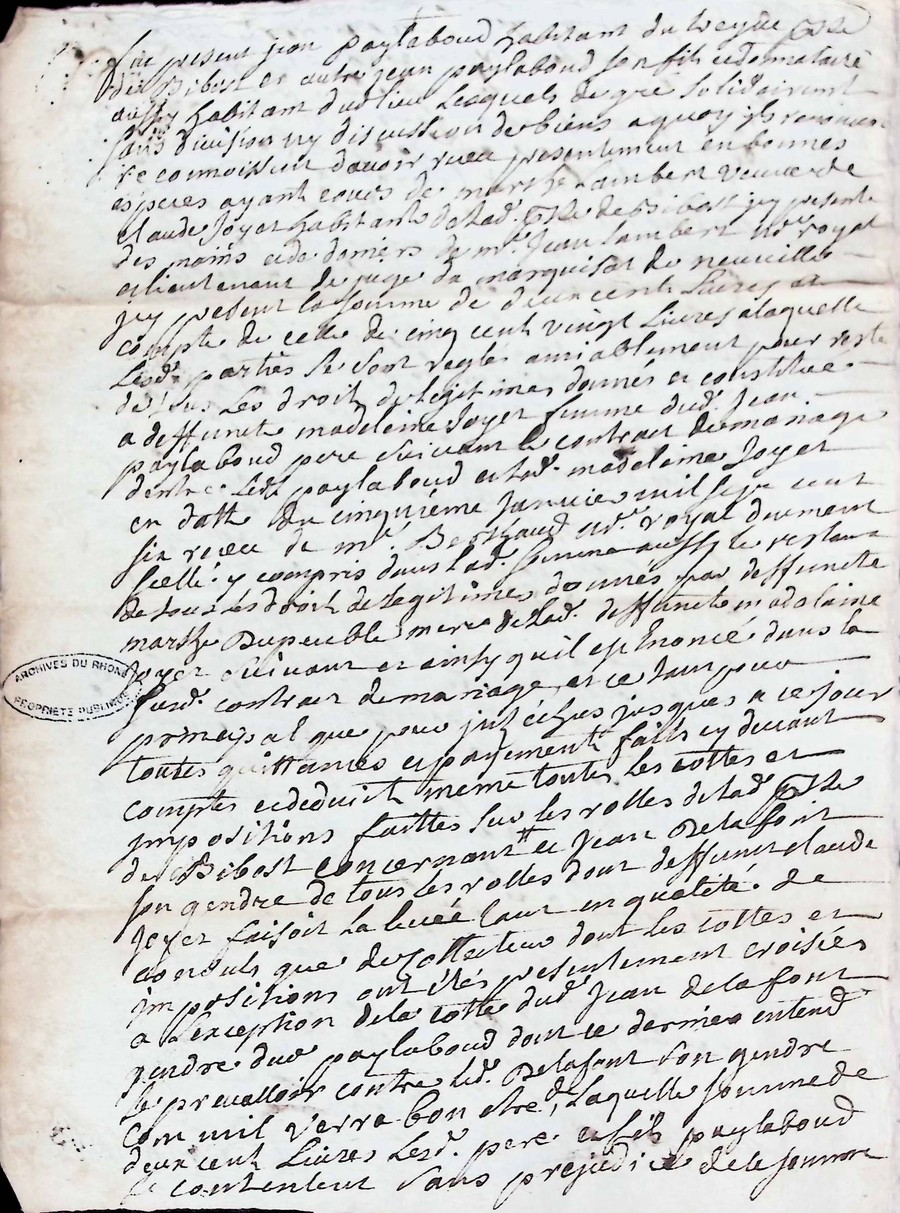 fut present jean paylaboud habitant du
de Bibost et autre jean paylaboud son fils et donnataire
aussy habitant dud lieu lesquels de gré solidairement
sans division ny discussion de biens a quoy ils renoncent
reconnoissent davoir receu presentement en bonnes
especes ayant cours de marthe Lambert veuve de
claude Joyet habitante de lad. psse de Bibost icy presente
des mains et de deniers de me. Jean Lambert nre. royal
et lieutenant de juge du marquisat de neuville
jcy present la somme de deux cent Livres a
compte de celle de cinq cent vingt Livres a laquelle
Lesd. parties se sont reglés amiablement pour reste
de tous Les droit de legitimes donnés et constitue
a deffuncte madeleine Joyet femme dud. Jean
paylaboud pere suivant le contract de mariage
dentre Led. paylaboud et lad. madeleine Joyet
en datte du cinquiéme Janvier mil sept cent
six receu de me. Berthaud nre. royal duement
scellé y compris dans lad. somme aussy le restant
de tous les droit de legitimes donnés par deffuncte
marthe Dupeuble mere de lad. deffuncte madelaine
Joyet suivant et ainsy quil est Enoncé dans le
susd. contract de mariage, et ce tant pour
principal que pour jnt échus jusques a ce jour
toutes quittances et payements faits cy devant
comptés et deduit meme toutes les cottes et
jmpositions faittes sur les rolles de lad. psse
de Bibost concernant et Jean Delafont
son gendre de tous les rolles dont deffunct claude
Joyet faisoit la levée tant en qualité de
consuls que de collecteur dont les cottes et
jmpositions ont étés presentement croisées
a Lexception de la cotte dud. Jean de la font
gendre dud paylaboud dont ce dernier entend
se prevalloir contre led. Delafont son gendre
comm'il verra bon etre, de Laquelle somme de
deux cent Livres Lesd. pere et fils paylaboud
se contentent sans prejudice de la somme
ARCHIVES DU RHONE
PROPRIETE PUBLIQUE